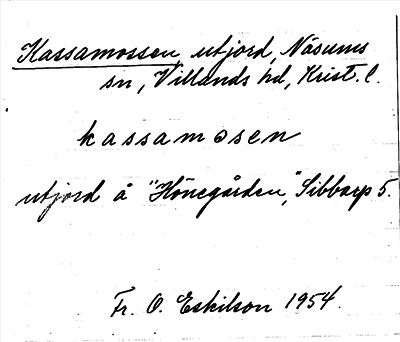 Kassamossen, utjord, Näsums
sn, Villands hd, Krist. l.
kassamosen
utjord å "Hönegården", Sibbarp 5.
Fr. O. Eskilson 1954.